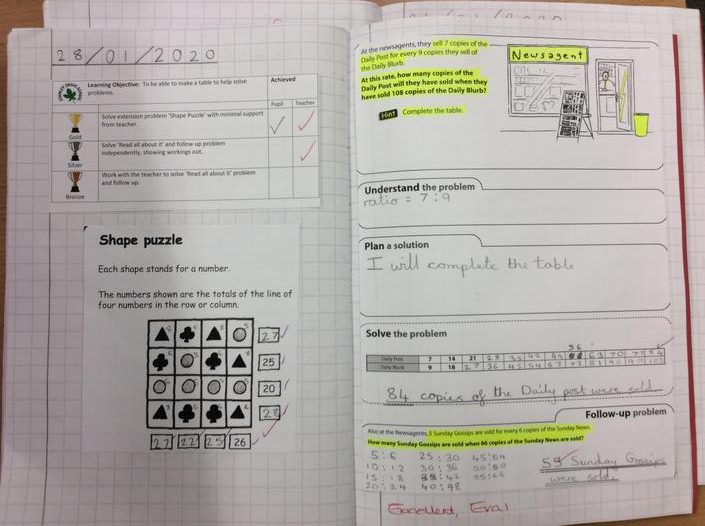 28/01/2020
Learning Objective: To be able to make a table to help solve problems.
Achieved
Pupil Teacher
Solve extension problem 'Shape Puzzle' with minimal support from teacher.
Gold
Solve 'Read all about it' and follow up problem independently, showing workings out.
Silver
Work with the teacher to solve 'Read all about it' problem and follow up.
Bronze
Shape puzzle
Each shape stands for a number.
The numbers shown are the totals of the line of
four numbers in the row or column.
27
25
20
28
27 22 25 26
At the newsagents, they sell 7 copies of the
Daily Post for every 9 copies they sell of
the Daily Blurb.
At this rate, how many copies of the
Daily Post will they have sold when they
have sold 108 copies of the Daily Blurb?
Hint Complete the table.
Newsagent
Understand the problem
ratio = 7:9
Plan a solution
I will complete the table
Solve the problem
56
Daily Post 7 14 21 28 35 42 49 63 70 77 84
Daily Blurb 9 18 27 36 45 54 63 72 81 90 99 108
84 copies of the Daily post were sold
Follow-up problem
Also at the Newsagents, 5 Sunday Gossips are sold for every 6 copies of the Sunday News.
How many Sunday Gossips are sold when 66 copies of the Sunday News are sold?
5:6 25:30 45:54
10:12 30:36 50:60
15:18 35:42 55:66
20:24 40:48
55 Sunday Gossips
were sold.
Excellent, Eva!